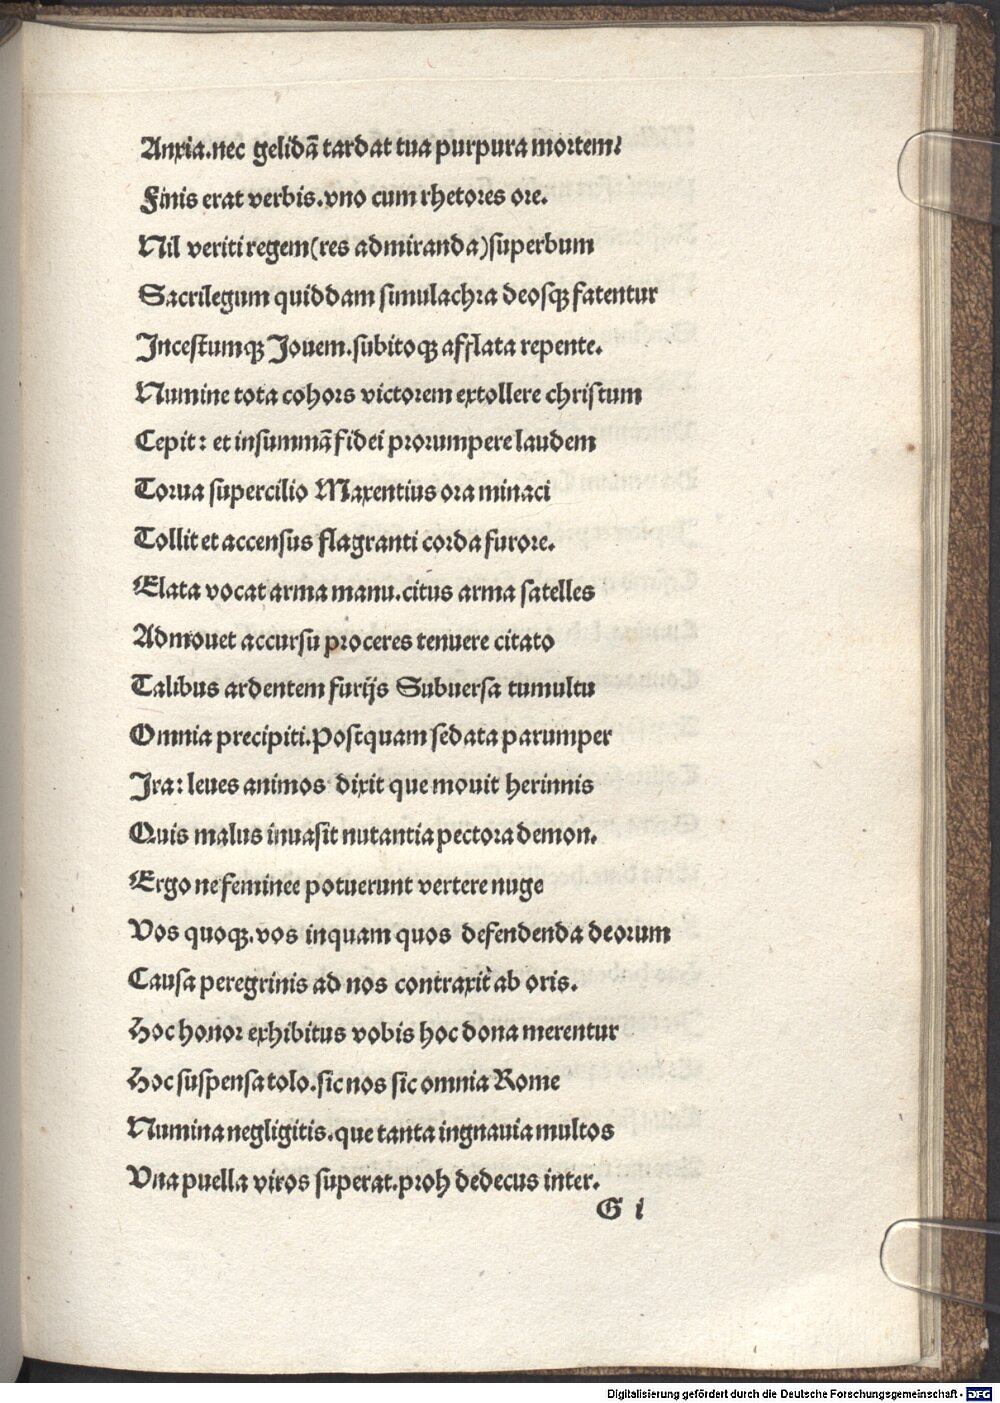 Anxia.nec gelidã tardat tua purpura mortem?
Finis erat verbis.vno cum rhetores ore.
Nil veriti regem(res admiranda)superbum
Sacrilegum quiddam simulachra deosqꝫ fatentur
Incestumqꝫ Jouem.subitoqꝫ afflata repente.
Numine tota cohors victorem extollere christum
Cepit: et insummã fidei prorumpere laudem
Torua supercilio Maxentius ora minaci
Tollit et accensus flagranti corda furore.
Elata vocat arma manu.citus arma satelles
Admouet accursu proceres tenuere citato
Talibus ardentem furijs Subuersa tumultu
Omnia precipiti.Postquam sedata parumper
Ira: leues animos dixit que mouit herinnis
Quis malus inuasit nutantia pectora demon.
Ergo ne feminee potuerunt vertere nuge
Vos quoqꝫ.vos inquam quos defendenda deorum
Causa peregrinis ad nos contraxit ab oris.
Hoc honor exhibitus vobis hoc dona merentur
Hoc suspensa tolo.sic nos sic omnia Rome
Numina negligitis.que tanta ingnauia multos
Vna puella viros superat.proh dedecus inter.
G i
Digitalisierung gefördert durch die Deutsche Forschungsgemeinschaft - DFG